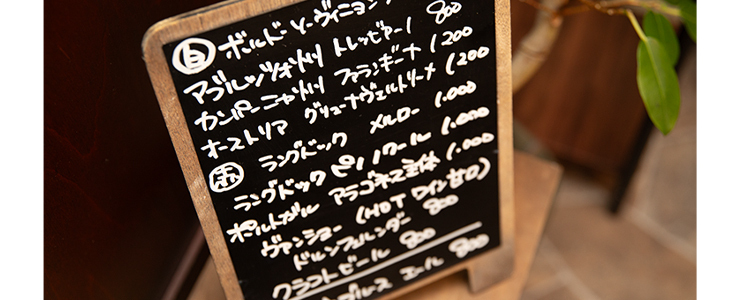 白 ボルドー ソーヴィニヨン
アブルッツォ州 トレッビアーノ 800
カンパーニャ州 ファランギーナ 1200
オーストリア グリューナヴェルトリーメ 1200
赤 ラングドック メルロー 1.000
ラングドック ピノノワール 1.000
ポルトガル アラゴネス主体 1.000
ヴァンショー (HOT ワイン甘口)
ドルンフェルンダー 800
クラフトビール 800
エール 800